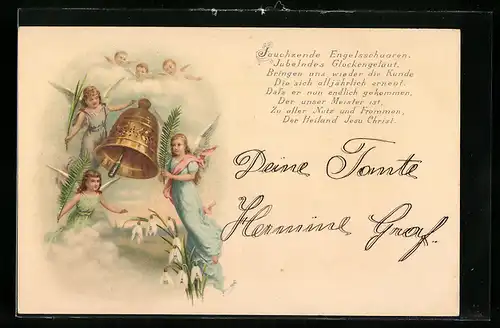 Jauchzende Engelsschaaren,
Jubelndes Glockengeläut,
Bringen uns wieder die Kunde
Die sich alljährlich erneut.
Daß er nun endlich gekommen,
Der unser Meister ist,
Zu aller Nutz und Frommen,
Der Heiland Jesu Christ.
Deine Tante
Hermine Graf.